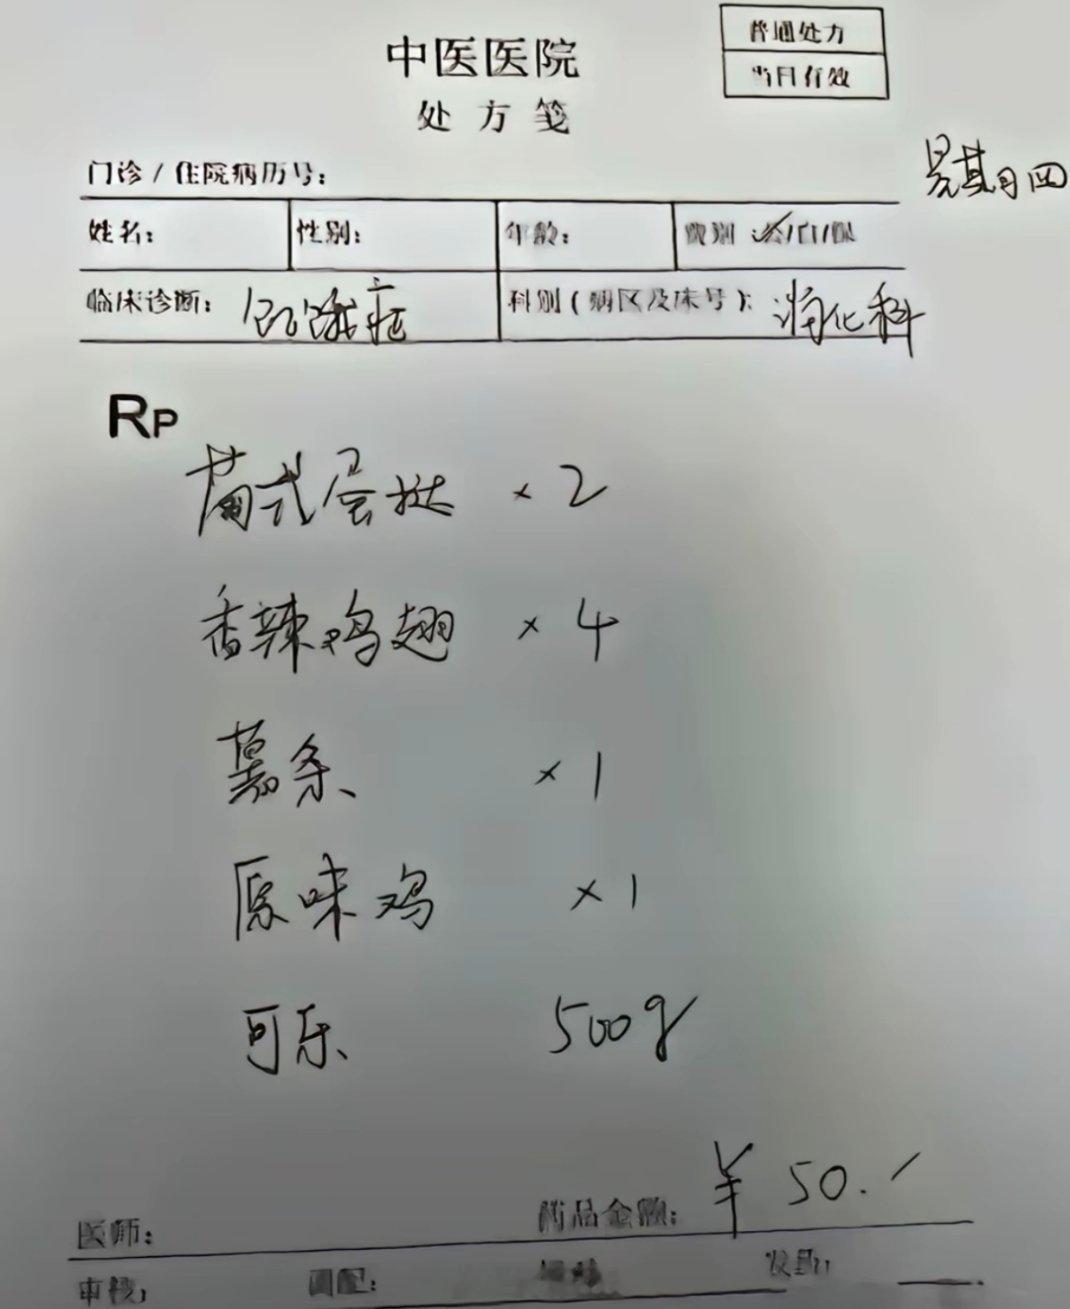 中医医院
处方笺
普通处方
当日有效
门诊/住院病历号:
星期四
姓名: 性别: 年龄: 费别:
临床诊断: 饥饿症 科别(病区及床号): 消化科
RP
葡式蛋挞 × 2
香辣鸡翅 × 4
薯条 × 1
原味鸡 × 1
可乐 500g
医师: 药品金额: ¥ 50.
审核: 调配: